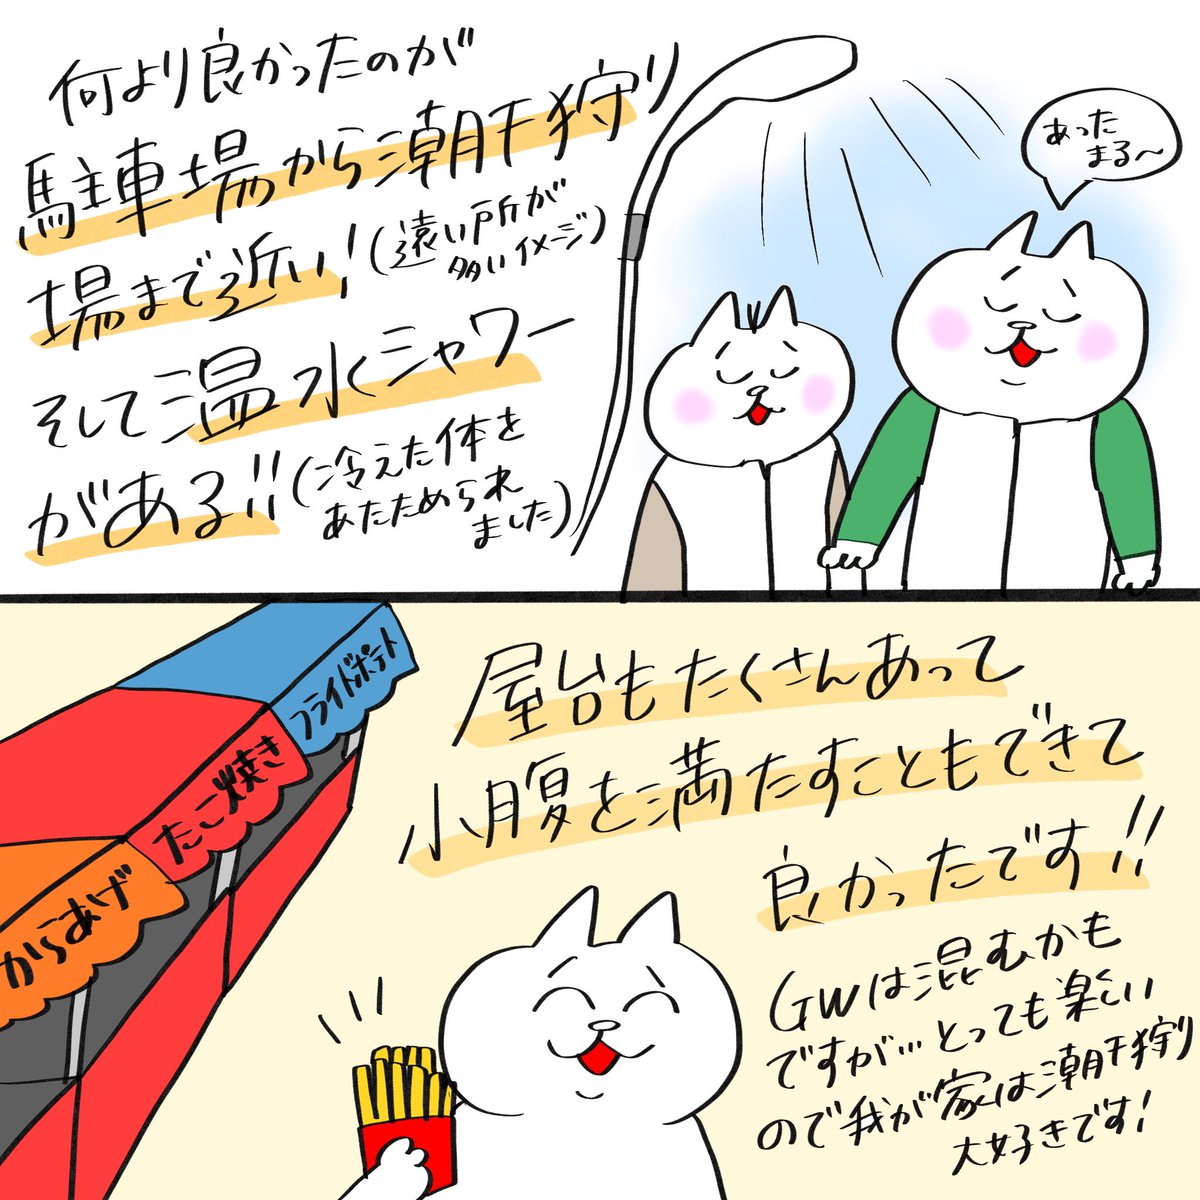 何より良かったのが
駐車場から潮干狩り
場まで近い！
（遠い所が
多いイメージ）
そして温水シャワー
がある!!
（冷えた体を
あたためられ
ました）
あった
まる〜
フライドポテト
たこ焼き
からあげ
屋台もたくさんあって
小腹を満たすこともできて
良かったです!!
GWは混むかも
ですが…とっても楽しい
ので我が家は潮干狩り
大好きです！